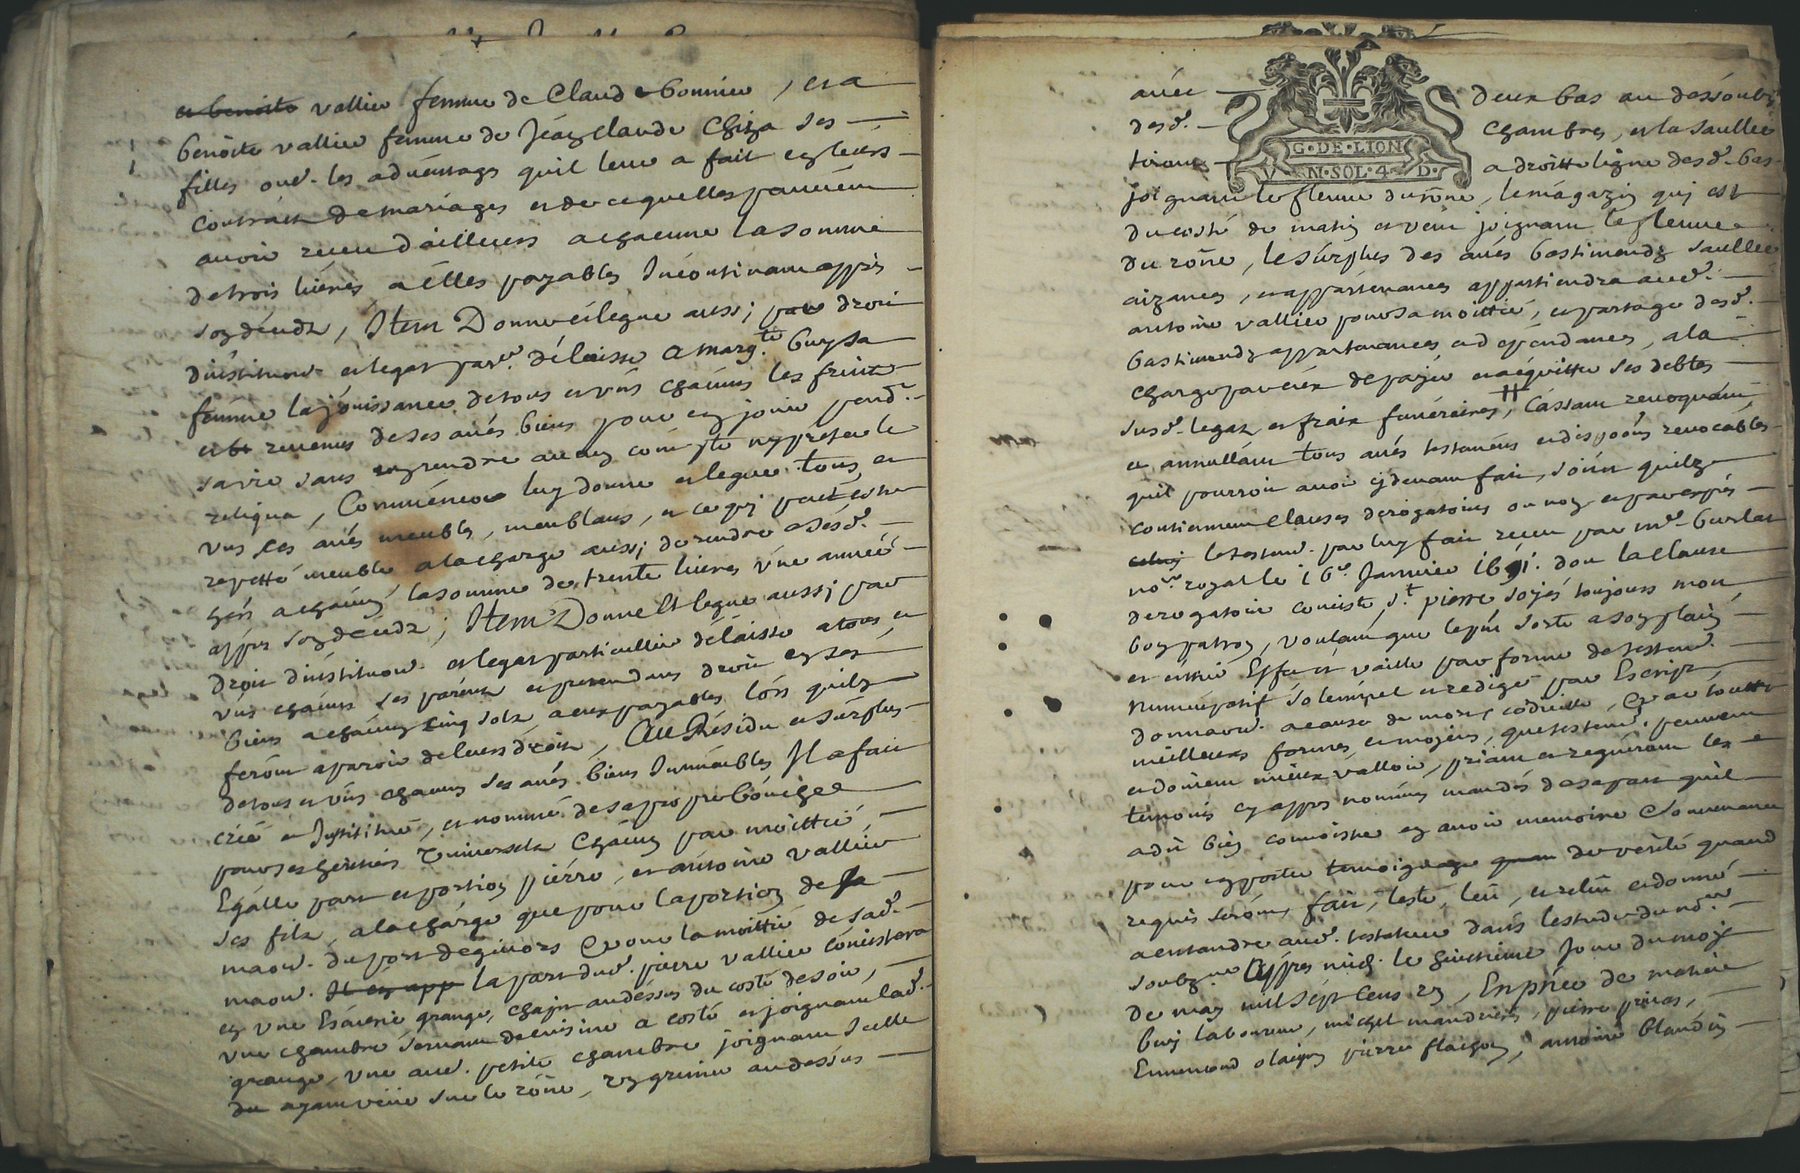 et benoite vallier femme de Claude bonnier, et a
benoite vallier femme de Jean Claude Chiza ses
filles outre les advantages quil leur a fait en leurs
contract de mariages et de ce quelles peuvent
avoir receu dailleurs a chacune la somme
de trois livres a elles payables Incontinant appres
son deceds, Item Donne et legue aussi par droit
dinstituon et legat par.er délaisse a marg.te buy sa
femme la jouissance de tous et uns chacuns les fruits
et revenus de ses aués biens pour en jouir pend.
sa vie sans en rendre aucun compte ny prester le
reliqua, Comme encore luy donne et legue tous et
uns ses aués meubles, meublans, et ce qui peut estre
reputté meuble a la charge aussi de rendre a ses d.
hers a chacun la somme de trente livres une année
appres son deceds; Item Donne Et legue aussi par
droit dinstituon et legat particullier délaisse a tous et
uns chacuns ses parents et pretendans droit en ses
biens a chacun cinq sols a eux payables lors quilz
feront aparoir de leurs droits, Au Résidu et surplus
de tous et uns chacuns ses aués biens Immeubles Il a fait
créé et Institué, et nommé de sa propre bouche
pour ses heritiers Universels chacun par moittié
Egalle part et portion pierre, et antoine vallier
ses fils, a la charge que pour la portion de sa
maon du port de givors et pour la moittié de sad.
maon Il en app la part dud. pierre vallier consistera
en une Escurie grange, chapit au dessus du costé de soir,
une chambre servant de cuisine a costé et joignant lad.
grange, une aud. petite chambre joignant Icelle
du ayant veue sur le rône, un grenier au dessus
G·DE·LION
VN·SOL·4·D·
avec deux bas au dessoubz
desd. chambres, et la saullée
tirant a droitte ligne desd. bas
joignant le fleuve du rône, le magazin qui est
du costé de matin et vent joignant le fleuve
du rône, le surplus des aués bastimendz saullée
aizances, et appartenances appartiendra aud.
antoine vallier pour sa moittié, et partage desd.
bastimendz appartenances et dependances, a la
charge par eux de payer et acquitter ses debtes
susd. legats et fraix funeraires, Cassant revoquant
et annullant tous aués testamens et disposons revocables
quil pourroit avoir cy devant fait, soient quilz
contiennent clauses derogatoires ou non et par exprès
celuy le testent. par luy fait receu par m.e burlat
no.re royal le 16.e Janvier 1691. dont la clause
derogatoire consiste, s.t pierre soyés toujours mon
bon patron, voulant que le pnt sorte a son plain
et entier Effect et vaille par forme de testent.
nuncupatif solempnel et redigé par Escript,
donnaon a cause de mort, codicille, et autoutte
meilleures formes et moyens, que testent. peuvent
et doivent mieux valloir, priant et requerant les
temoins cy appres nommés mandés de sa part quil
a dit bien connoistre en avoir memoire Souvenance
pour en porter temoignage quan de verité quand
requis seront, fait, testé, leu, et releu et donné
a entendre aud. testateur dans lestude du no.re
soubz.né Appres midy le huictieme Jour du mois
De may mil sept cens un, En pnce de mathieu
buis laboureur, michel mandrier, pierre privas,
Ennemond olagnon pierre flachon, antoine blandin